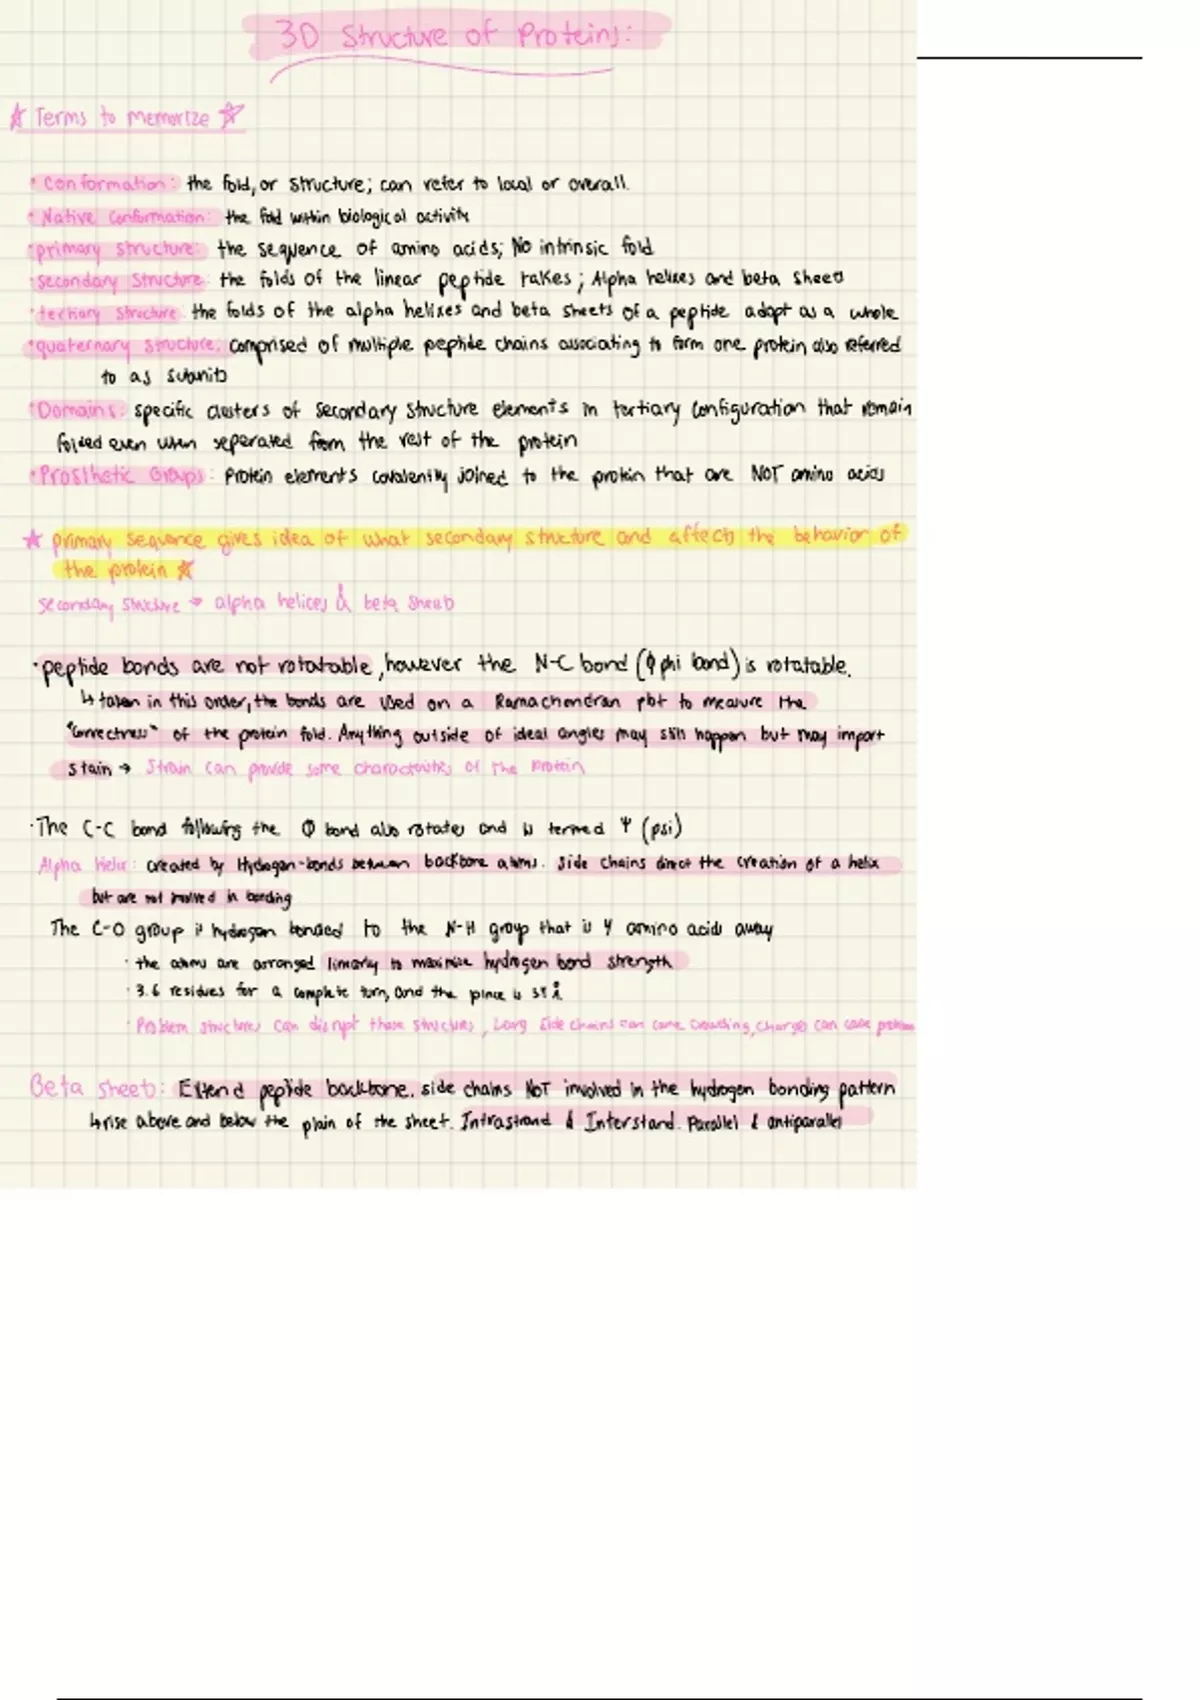 3D Structure of Proteins:
☆ Terms to memorize ☆
• Conformation: the fold, or structure; can refer to local or overall.
• Native Conformation: the fold within biological activity
• primary structure: the sequence of amino acids; No intrinsic fold
• secondary structure: the folds of the linear peptide takes; Alpha helixes and beta sheets
• tertiary structure: the folds of the alpha helixes and beta sheets of a peptide adopt as a whole
• quaternary structure: comprised of multiple peptide chains associating to form one protein also referred
to as subunits
• Domains: specific clusters of secondary structure elements in tertiary configuration that remain
folded even when seperated from the rest of the protein
• Prosthetic Groups: Protein elements covalently joined to the protein that are NOT amino acids
★ primary sequence gives idea of what secondary structure and affects the behavior of
the protein ☆
secondary structure → alpha helices & beta sheets
• peptide bonds are not rotatable, however the N-C bond (ϕ phi bond) is rotatable.
↳ taken in this order, the bonds are used on a Ramachandran plot to measure the
"correctness" of the protein fold. Anything outside of ideal angles may still happen but may import
stain → Strain can provide some characteristics of the protein
• The C-C bond following the Φ bond also rotates and is termed Ψ (psi)
Alpha Helix: created by Hydrogen-bonds between backbone atoms. Side chains direct the creation of a helix
but are not involved in bonding
The C-O group is hydrogen bonded to the N-H group that is 4 amino acids away
• the atoms are arranged linearly to maximize hydrogen bond strength
• 3.6 residues for a complete turn, and the is
• Problem structures can disrupt these structures, Long side chains can cause crowding, charges can cause problems
Beta sheets: Extend peptide backbone. side chains NOT involved in the hydrogen bonding pattern
↳ rise above and below the plain of the sheet. Intrastrand & Interstand. Parallel & antiparallel